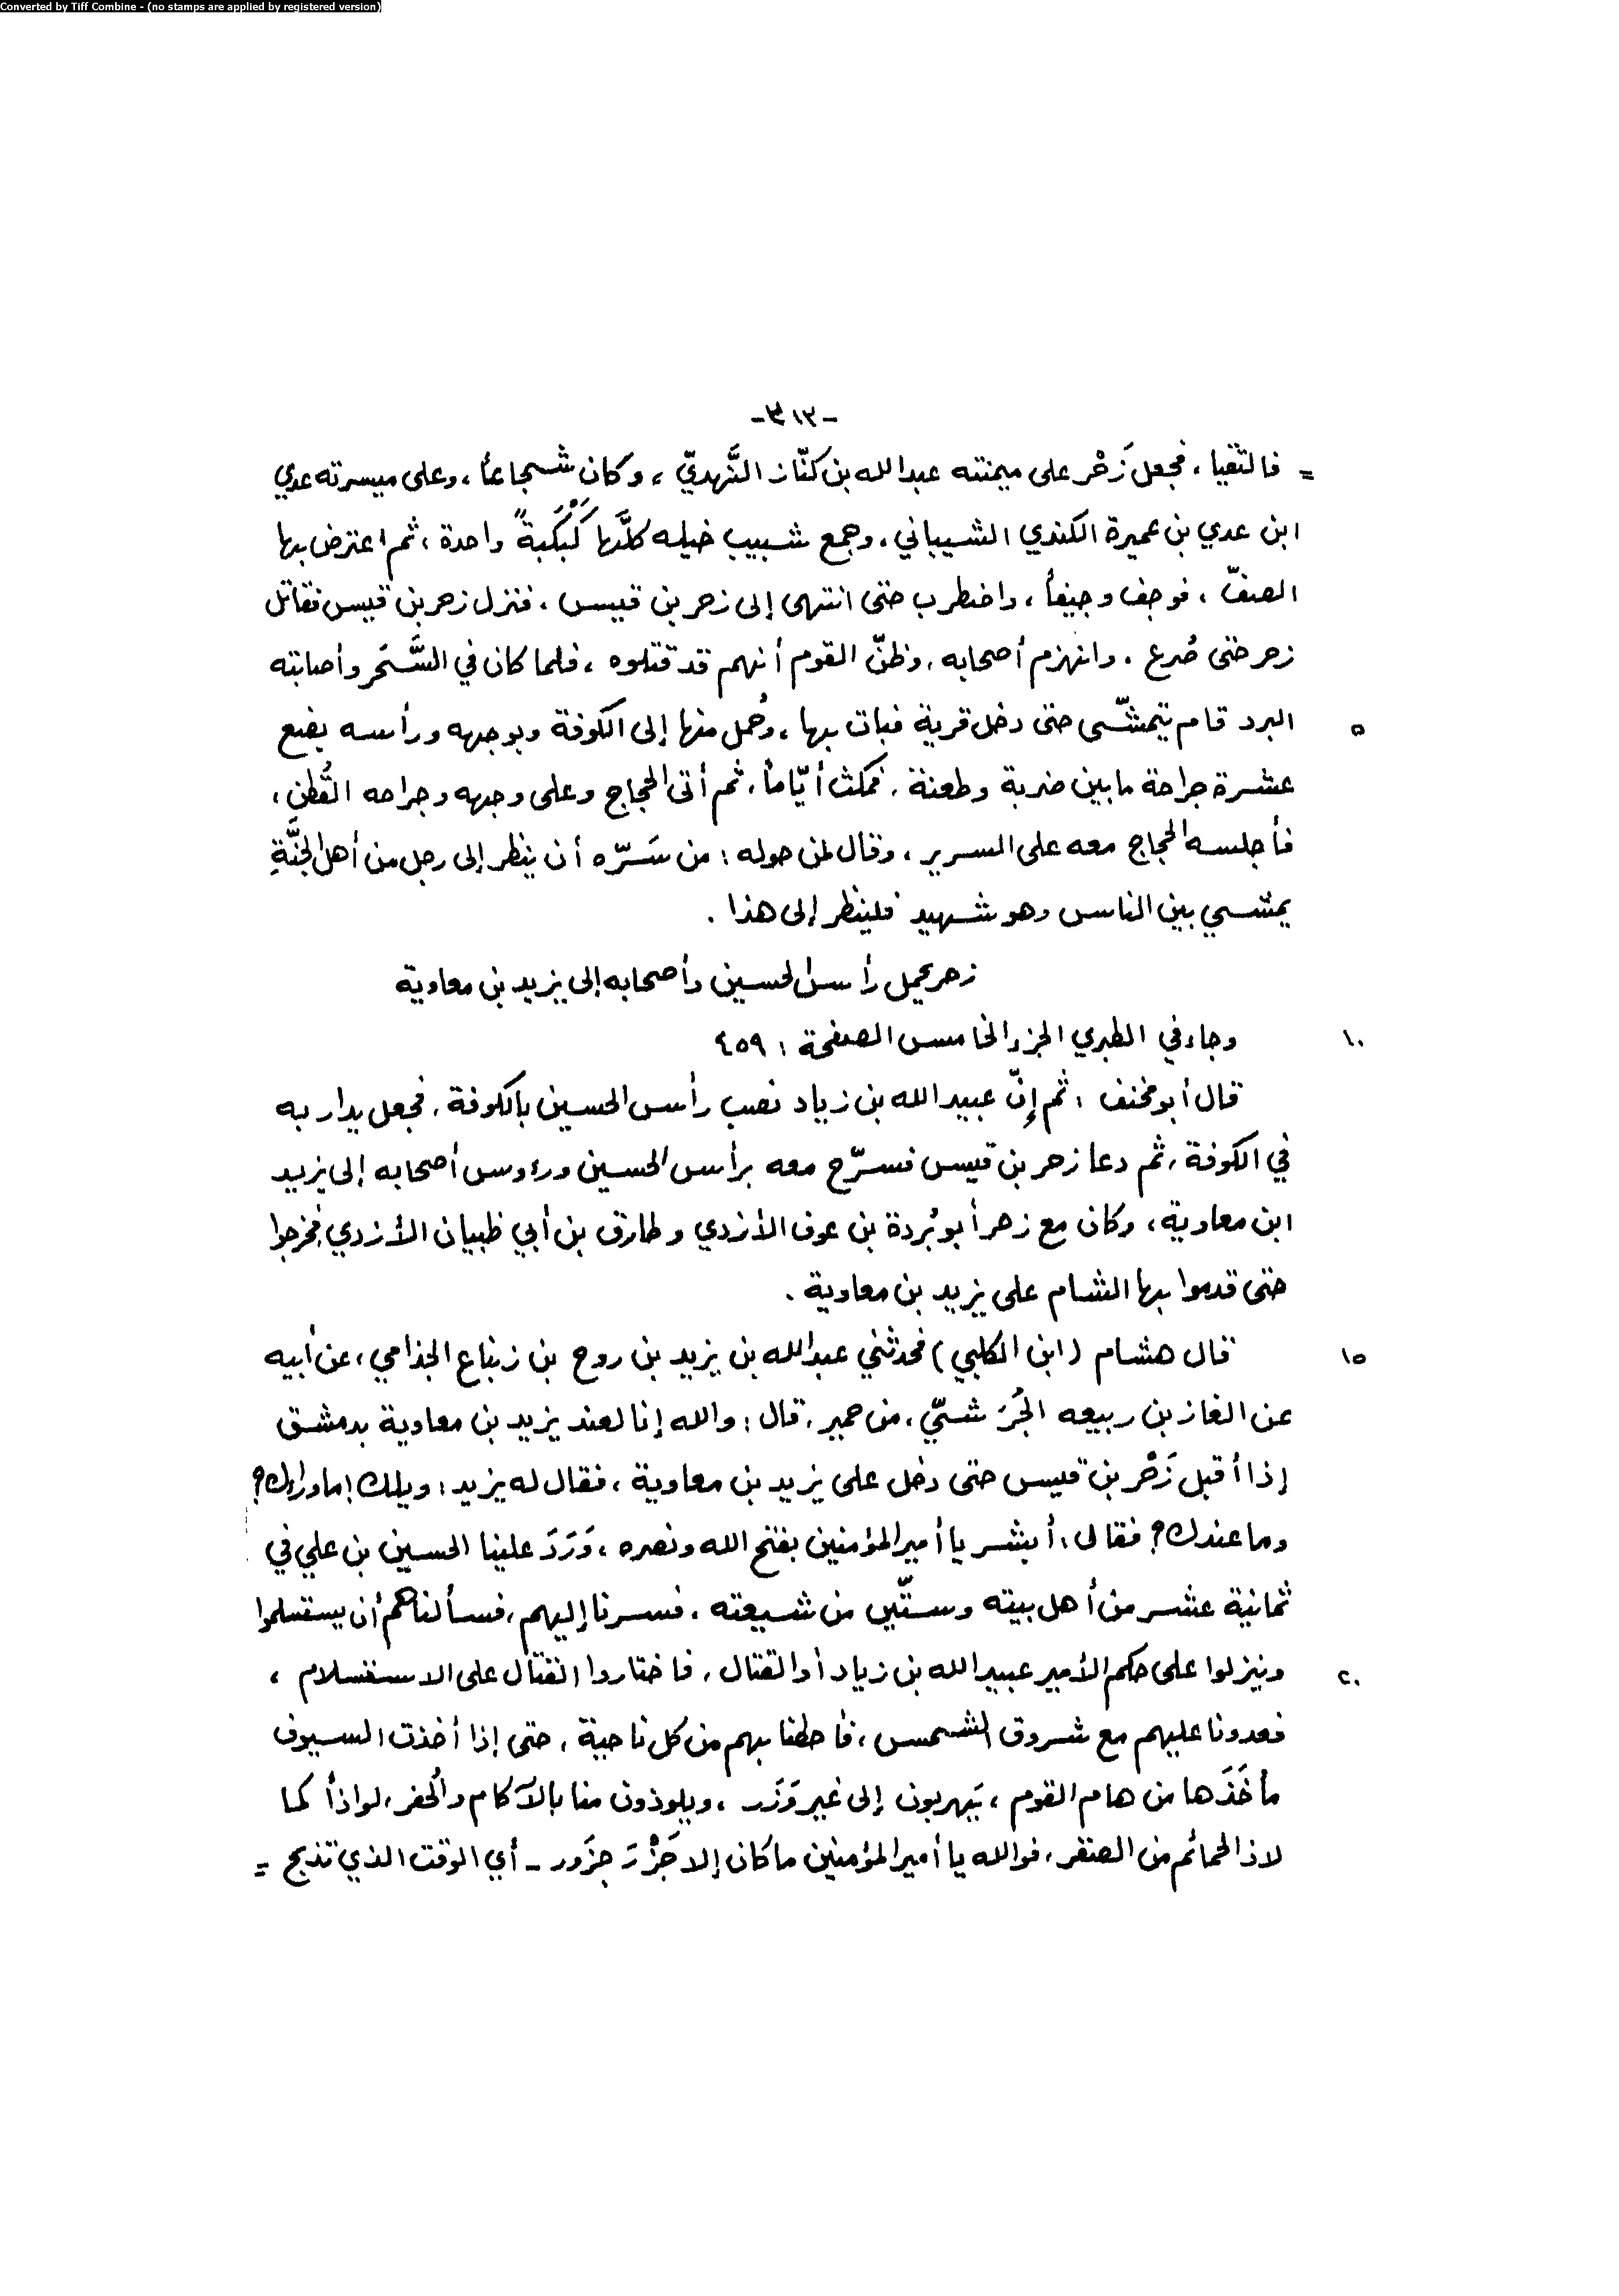 Converted by Tiff Combine - (no stamps are applied by registered version)
-٣١٣-
= فالتقيا، فجعل زَحْر على ميمنته عبدالله بن كنّاز النَّهديّ، وكان شجاعاً، وعلى ميسرته عدي
ابن عدي بن عميرة الكندي الشيباني، وجمع شبيب خيله كلَّها كَبْكَبةً واحدة، ثم اعترض بها
الصفّ، فوجف وجيفاً، واضطرب حتى انتهى إلى زحر بن قيس، فنزل زحر بن قيس فقاتل
زحر حتى صُرع، وانهزم أصحابه، وظنّ القوم أنهم قد قتلوه، فلما كان في السَّحَر وأصابته
٥ البرد قام يتمشّى حتى دخل قرية فبات بها، وحُمل منها إلى الكوفة وبوجهه ورأسه بضع
عشرة جراحة مابين ضربة وطعنة، فمكث أيّاماً، ثم أتى الحجاج وعلى وجهه وجراحه القُطن،
فأجلسه الحجاج معه على السرير، وقال لمن حوله: من سَرّه أن ينظر إلى رجل من أهل الجنَّةِ
يمشي بين الناس وهو شهيد فلينظر إلى هذا.
زحر يحمل رأس الحسين وأصحابه إلى يزيد بن معاوية
١٠ وجاء في الطبري الجزء الخامس الصفحة: ٤٥٩
قال أبو مخنف: ثم إنّ عبيدالله بن زياد نصب رأس الحسين بالكوفة، فجعل يدار به
في الكوفة، ثم دعا زحر بن قيس فسرّح معه برأس الحسين ورءوس أصحابه إلى يزيد
ابن معاوية، وكان مع زحر أبو بُردة بن عوف الأزدي وطارق بن أبي ظبيان الأزدي، فخرجوا
حتى قدموا بها الشام على يزيد بن معاوية.
١٥ قال هشام (ابن الكلبي) فحدثني عبدالله بن يزيد بن روح بن زنباع الجذامي، عن أبيه
عن الغاز بن ربيعه الجُرَشيّ، من حمير، قال: والله إنا لعند يزيد بن معاوية بدمشق
إذا أقبل زَحْر بن قيس حتى دخل على يزيد بن معاوية، فقال له يزيد: ويلك! ما وراءك؟
وما عندك؟ فقال: أبشر يا أمير المؤمنين بفتح الله ونصره، وَرَدَ علينا الحسين بن علي في
ثمانية عشر من أهل بيته وستّين من شيعته، فسرنا إليهم، فسألناهم أن يستسلموا
٢٠ وينزلوا على حكم الأمير عبيدالله بن زياد أو القتال، فاختاروا القتال على الاستسلام،
فعدونا عليهم مع شروق الشمس، فأحطنا بهم من كل ناحية، حتى إذا أخذت السيوف
مأخَذَها من هام القوم، يَهربون إلى غير وَزَر، ويلوذون منا بالآكام والحُفر، لواذاً كما
لاذ الحمائم من الصقر، فوالله يا أمير المؤمنين ما كان إلا جَزْرَ جزَور - أي الوقت الذي تذبح =